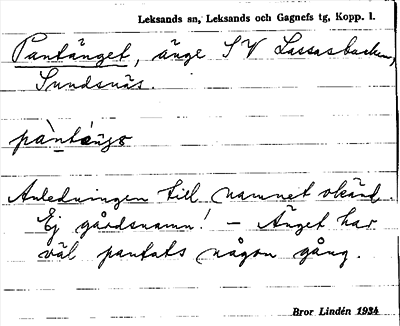 Leksands sn, Leksands och Gagnefs tg, Kopp. l.
Pantänget, änge SV Lassasbacken,
Sundsnäs.
Anledningen till namnet okänd.
Ej gårdsnamn! – Änget har
väl pantats någon gång.
Bror Lindén 1934